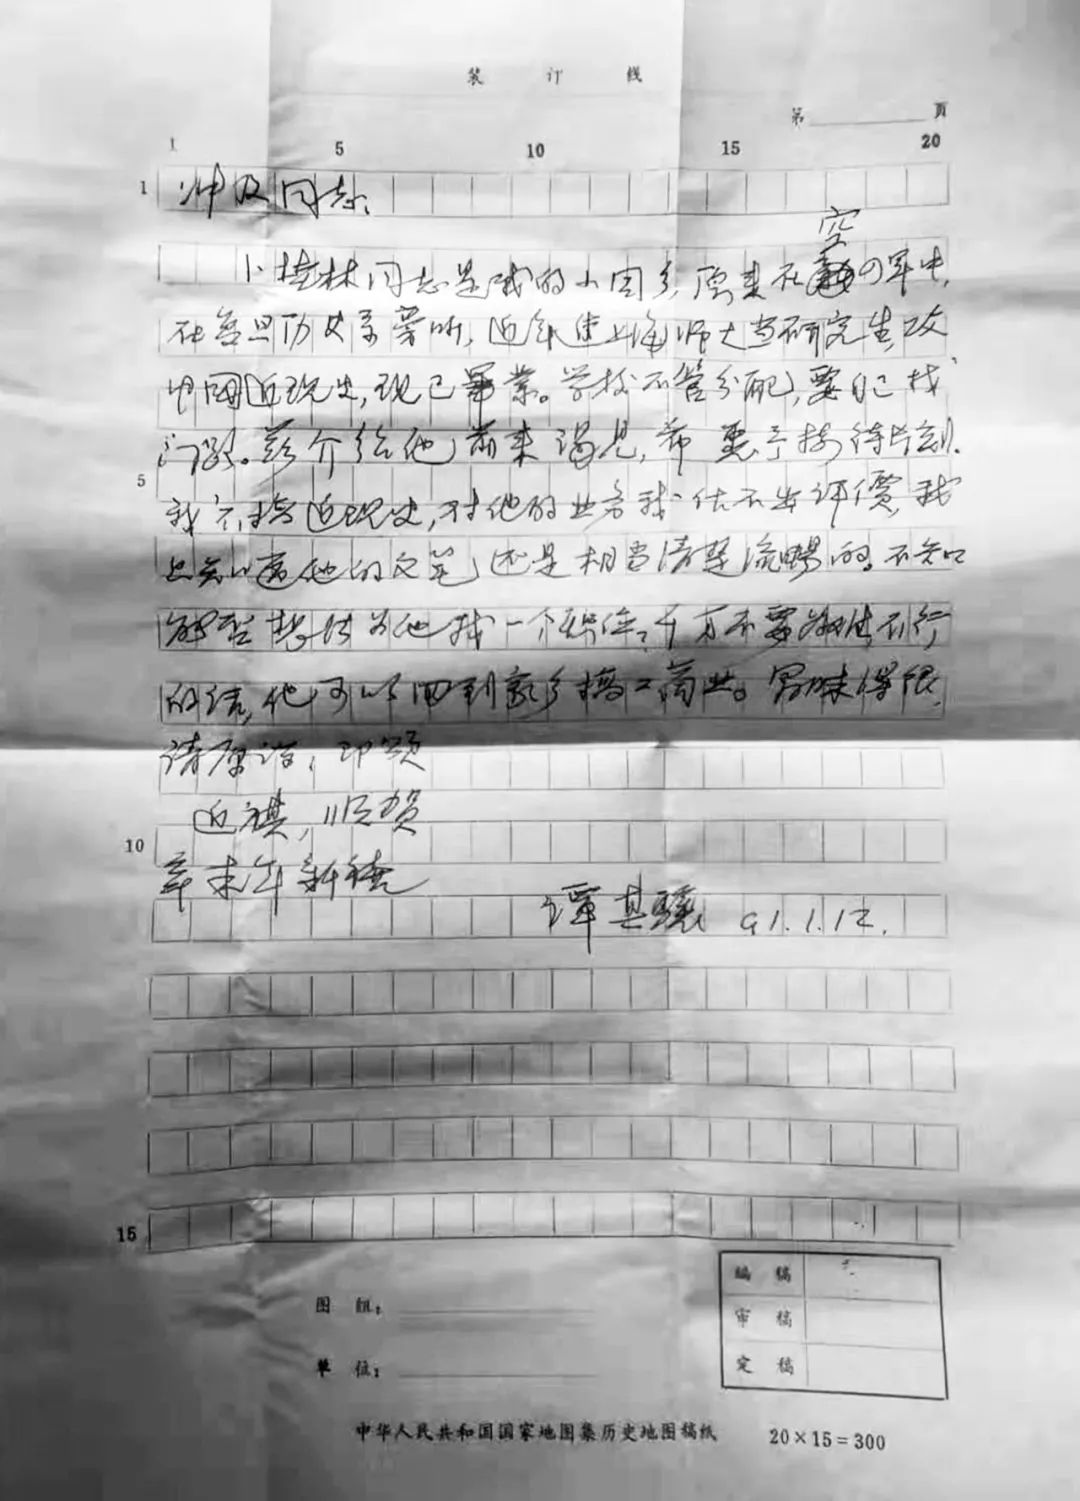 装 订 线
第 页
1 5 10 15 20
1
仲及同志:
空
卜桂林同志是我的小同乡,原来在军中,
在复旦历史系旁听,近年进上海师大当研究生,攻
中国近现史,现已毕业。学校不管分配,要自己找
门路。兹介绍他前来谒见,希惠予接待片刻。
5
我不搞近现史,对他的业务我估不出评价,我
只知道他的文笔还是相当清楚流畅的。不知
能否想法为他找一个职位?千万不要勉强,不行
的话,他可以回到家乡搞工商业。冒昧得很,
请原谅,即颂
近祺,顺贺
10
辛未年新禧
谭其骧 91.1.12.
15
编 稿
审 稿
定 稿
图 组:
单 位:
中华人民共和国国家地图集历史地图稿纸 20×15=300